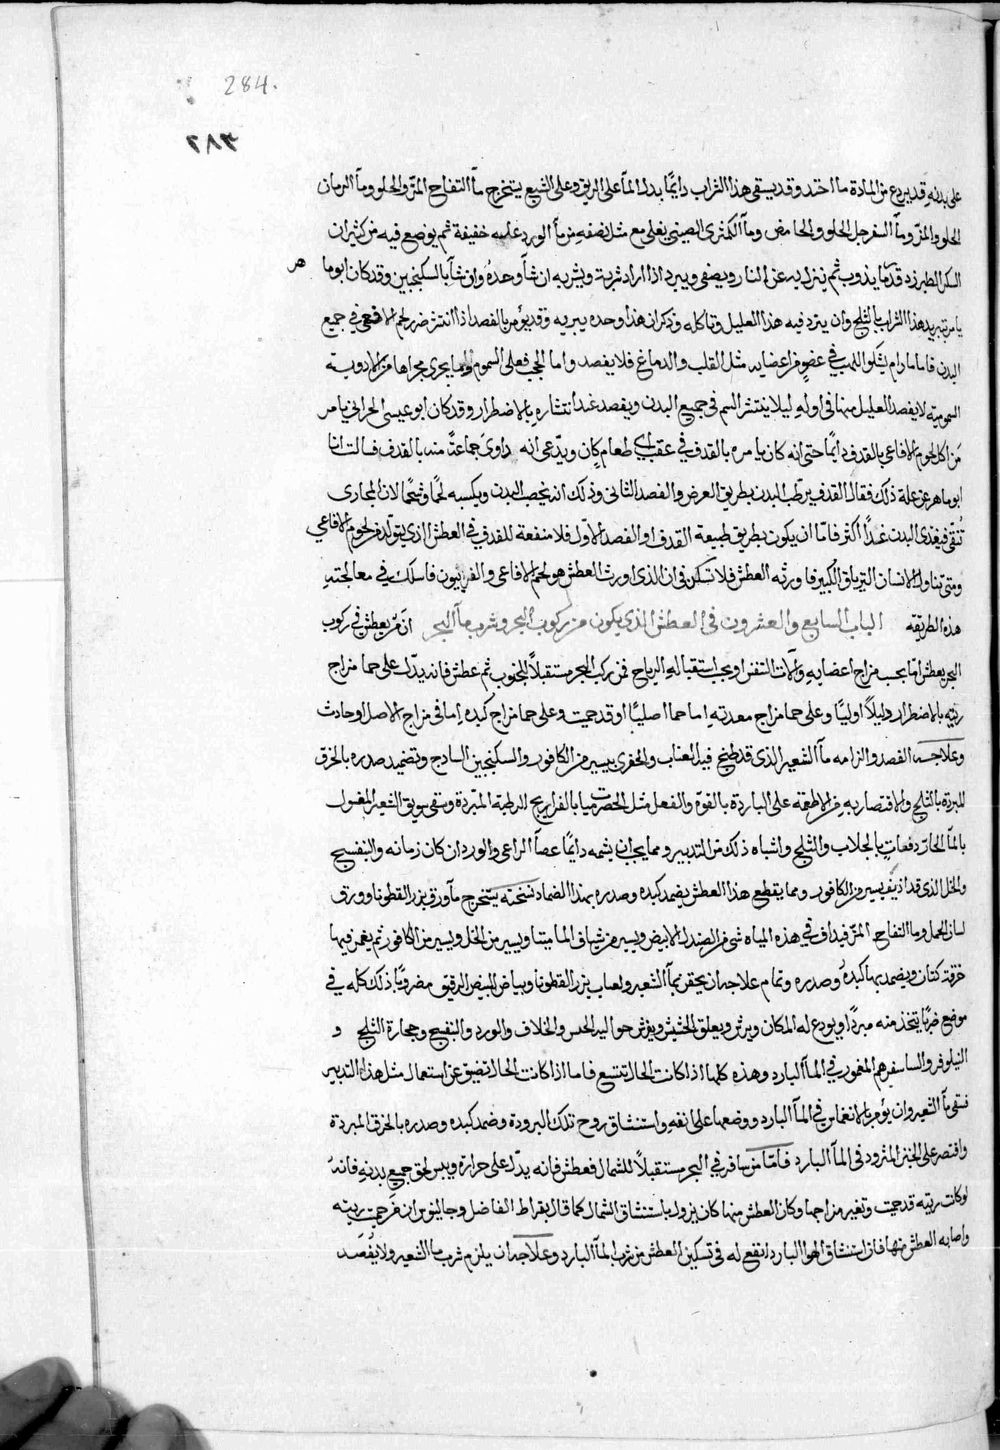 284.
٢٨٣
على بدنه قد يردع من المادة ما احتد وقد يسقى هذا الشراب دايمًا بدل الماء على الريق وعلى الشبع يستخرج ماء التفاح المز والحلو وماء الرمان
الحلو والمز وماء السفرجل الحلو والحامض وماء الكمثرى الصيني يغلى مع مثل نصفه من ماء الورد غليه خفيفة ثم يوضع فيه من كيزان
السكر الطبرزد قدر ما يذوب ثم ينزل به عن النار ويصفى ويبرد اذا اراد شربة ويشربه ان شا وحده وان شا بالسكنجبين وقد كان ابو ما
هر
يامر بتبريد هذا الشراب بالثلج وان يثرد فيه هذا العليل وتاكله وذكر ان هذا وحده يبريه وقد يؤمر بالفصد اذا انتشر ضرر لحم الافعى في جميع
البدن فاما ما دام يشكو اللهب في عضو من اعضايه مثل القلب والدماغ فلا يفصد واما الحجب فعلى السموم وما يجرى مجراها من الادوية
السمومية لا يفصد العليل منها في اوله ليلا ينتشر السم في جميع البدن ويفصد عند انتشاره بالاضطرار وقد كان ابو عيسى الحراني يامر
من اكل لحوم الافاعي بالقذف دايمًا حتى انه كان يامره بالقذف في عقب اى طعام كان ويدعى انه داوى جماعةً منه بالقذف فسالت انا
ابو ماهر عن علة ذلك فقال القذف يرطب البدن بطريق العرض والقصد الثانى وذلك انه يخصب البدن ويكسبه لحمًا وشحمًا لان المجارى
تُنقى فيغذى البدن غذاً اكثر فامّا ان يكون بطريق طبيعة القذف او القصد الاول فلا منفعة للقذف في العطش الذي يتولد من لحوم الافاعي
ومتى تناول الانسان الترياق الكبير فاورثه العطش فلا تشكن في ان الذى اورث العطش هو لحم الافاعى والفربيون فاسلك في معالجته
هذه الطريقه الباب السابع والعشرون في العطش الذى يكون من ركوب البحر وشرب ماء البحر ان من يعطش في ركوب
البحر يعطش امّا بحسب مزاج اعضايه والات التنفس او بحسب استقباله الرياح فمن ركب البحر مستقبلاً للجنوب ثم عطش فانه يدل على حما مزاج
ريته بالاضطرار دليلاً اوليًا وعلى حما مزاج معدته اما حما اصليًا او قد حميت وعلى حما مزاج كبده اما في مزاج الاصل او حادث
وعلاجه الفصد والزامه ماء الشعير الذى قد طبخ فيه العناب والخفرى بيسير من الكافور والسكنجبين الساذج وتضميد صدره بالخرق
المبردة بالثلج والاقتصار به من الاطعمه على الباردة بالقوة والفعل مثل الحصرميا بالفراريج الرطبة المبردة وسقى سويق الشعير المغسول
بالماء الحار دفعات بالجلاب والثلج واشباه ذلك من التدبير ومما يجب ان يشمه دايمًا عصا الراعى والورد ان كان زمانه والبنفسج
والخل الذى قد اذيف بيسير من الكافور ومما يقطع هذا العطش يضمد كبده وصدره بهذا الضماد نسخته يستخرج ماء ورق بزر القطونا وورق
لسان الحمل وماء التفاح المز فيداف في هذه المياه شى من الصندل الابيض ويسير من شياف الماميثا ويسير من الخل ويسير من الكافور ثم يغمز فيها
خرقة كتان ويضمد بها كبده وصدره وتمام علاجه ان يحقن بماء الشعير ولعاب بزر القطونا وبياض البيض الرقيق مضروبًا ذلك كله في
موضع ضربًا يتخذ منه مبردًا ويودع له المكان ويرش ويعلق الخيش ويفرش حواليه الخس والخلاف والورد والبنفسج وحجارة الثلج و
النيلوفر والساسفرهم المغمور في الماء البارد وهذه كلها اذا كانت الحال تتسع فاما اذا كانت الحال تضيق عن استعمال مثل هذا التدبير
فسقى ماء الشعير وان يؤمر بالانغماس في الماء البارد ووضعها على انفه واستنشاق روح تلك البرودة وضمد كبده وصدره بالخرق المبردة
واقتصر على الخبز المثرود في الماء البارد فامّا من سافر في البحر مستقبلاً للشمال فعطش فانه يدل على حرارة ويبس لحق جميع بدنه فانه
لو كانت ريته قد حميت وتغير مزاجها وكان العطش منها كان يزول باستنشاق الشمال كما قال بقراط الفاضل وجالينوس ان من حميت ريته
واصابه العطش منها فان استنشاق الهواء البارد انقع له في تسكين العطش من شرب الماء البارد وعلاجه ان يلزم شرب ماء الشعير ولا يُفصَد